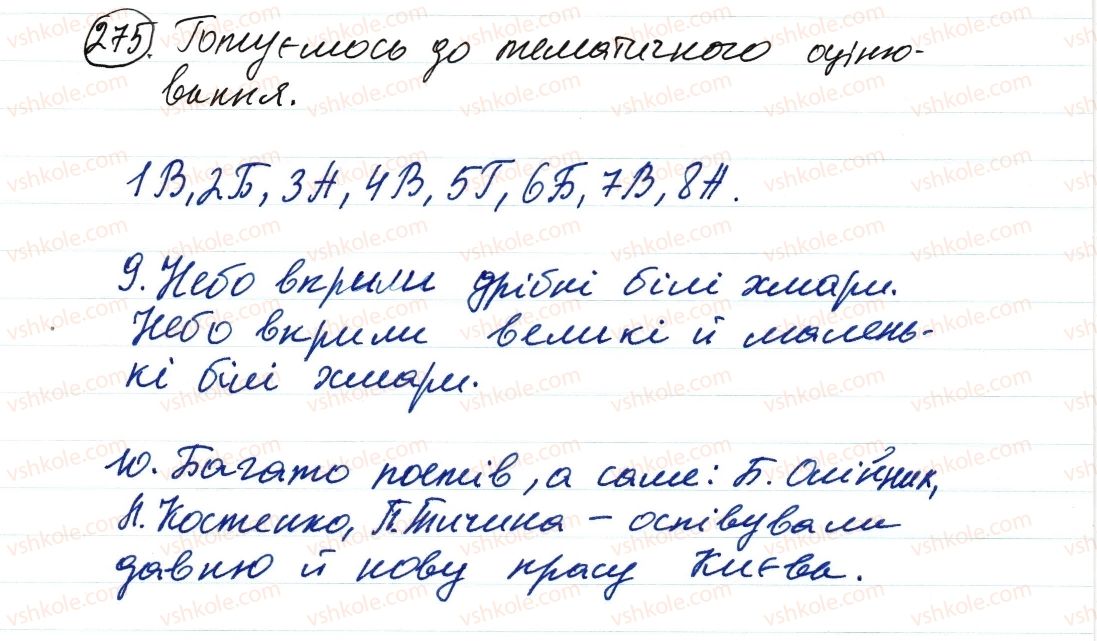 275. Готуємось до тематичного оціню-
вання.
1В, 2Б, 3А, 4В, 5Г, 6Б, 7В, 8А.
9. Небо вкрили дрібні білі хмари.
Небо вкрили великі й малень-
кі білі хмари.
10. Багато поетів, а саме: Б. Олійник,
Л. Костенко, П. Тичина – оспівували
давню й нову красу Києва.